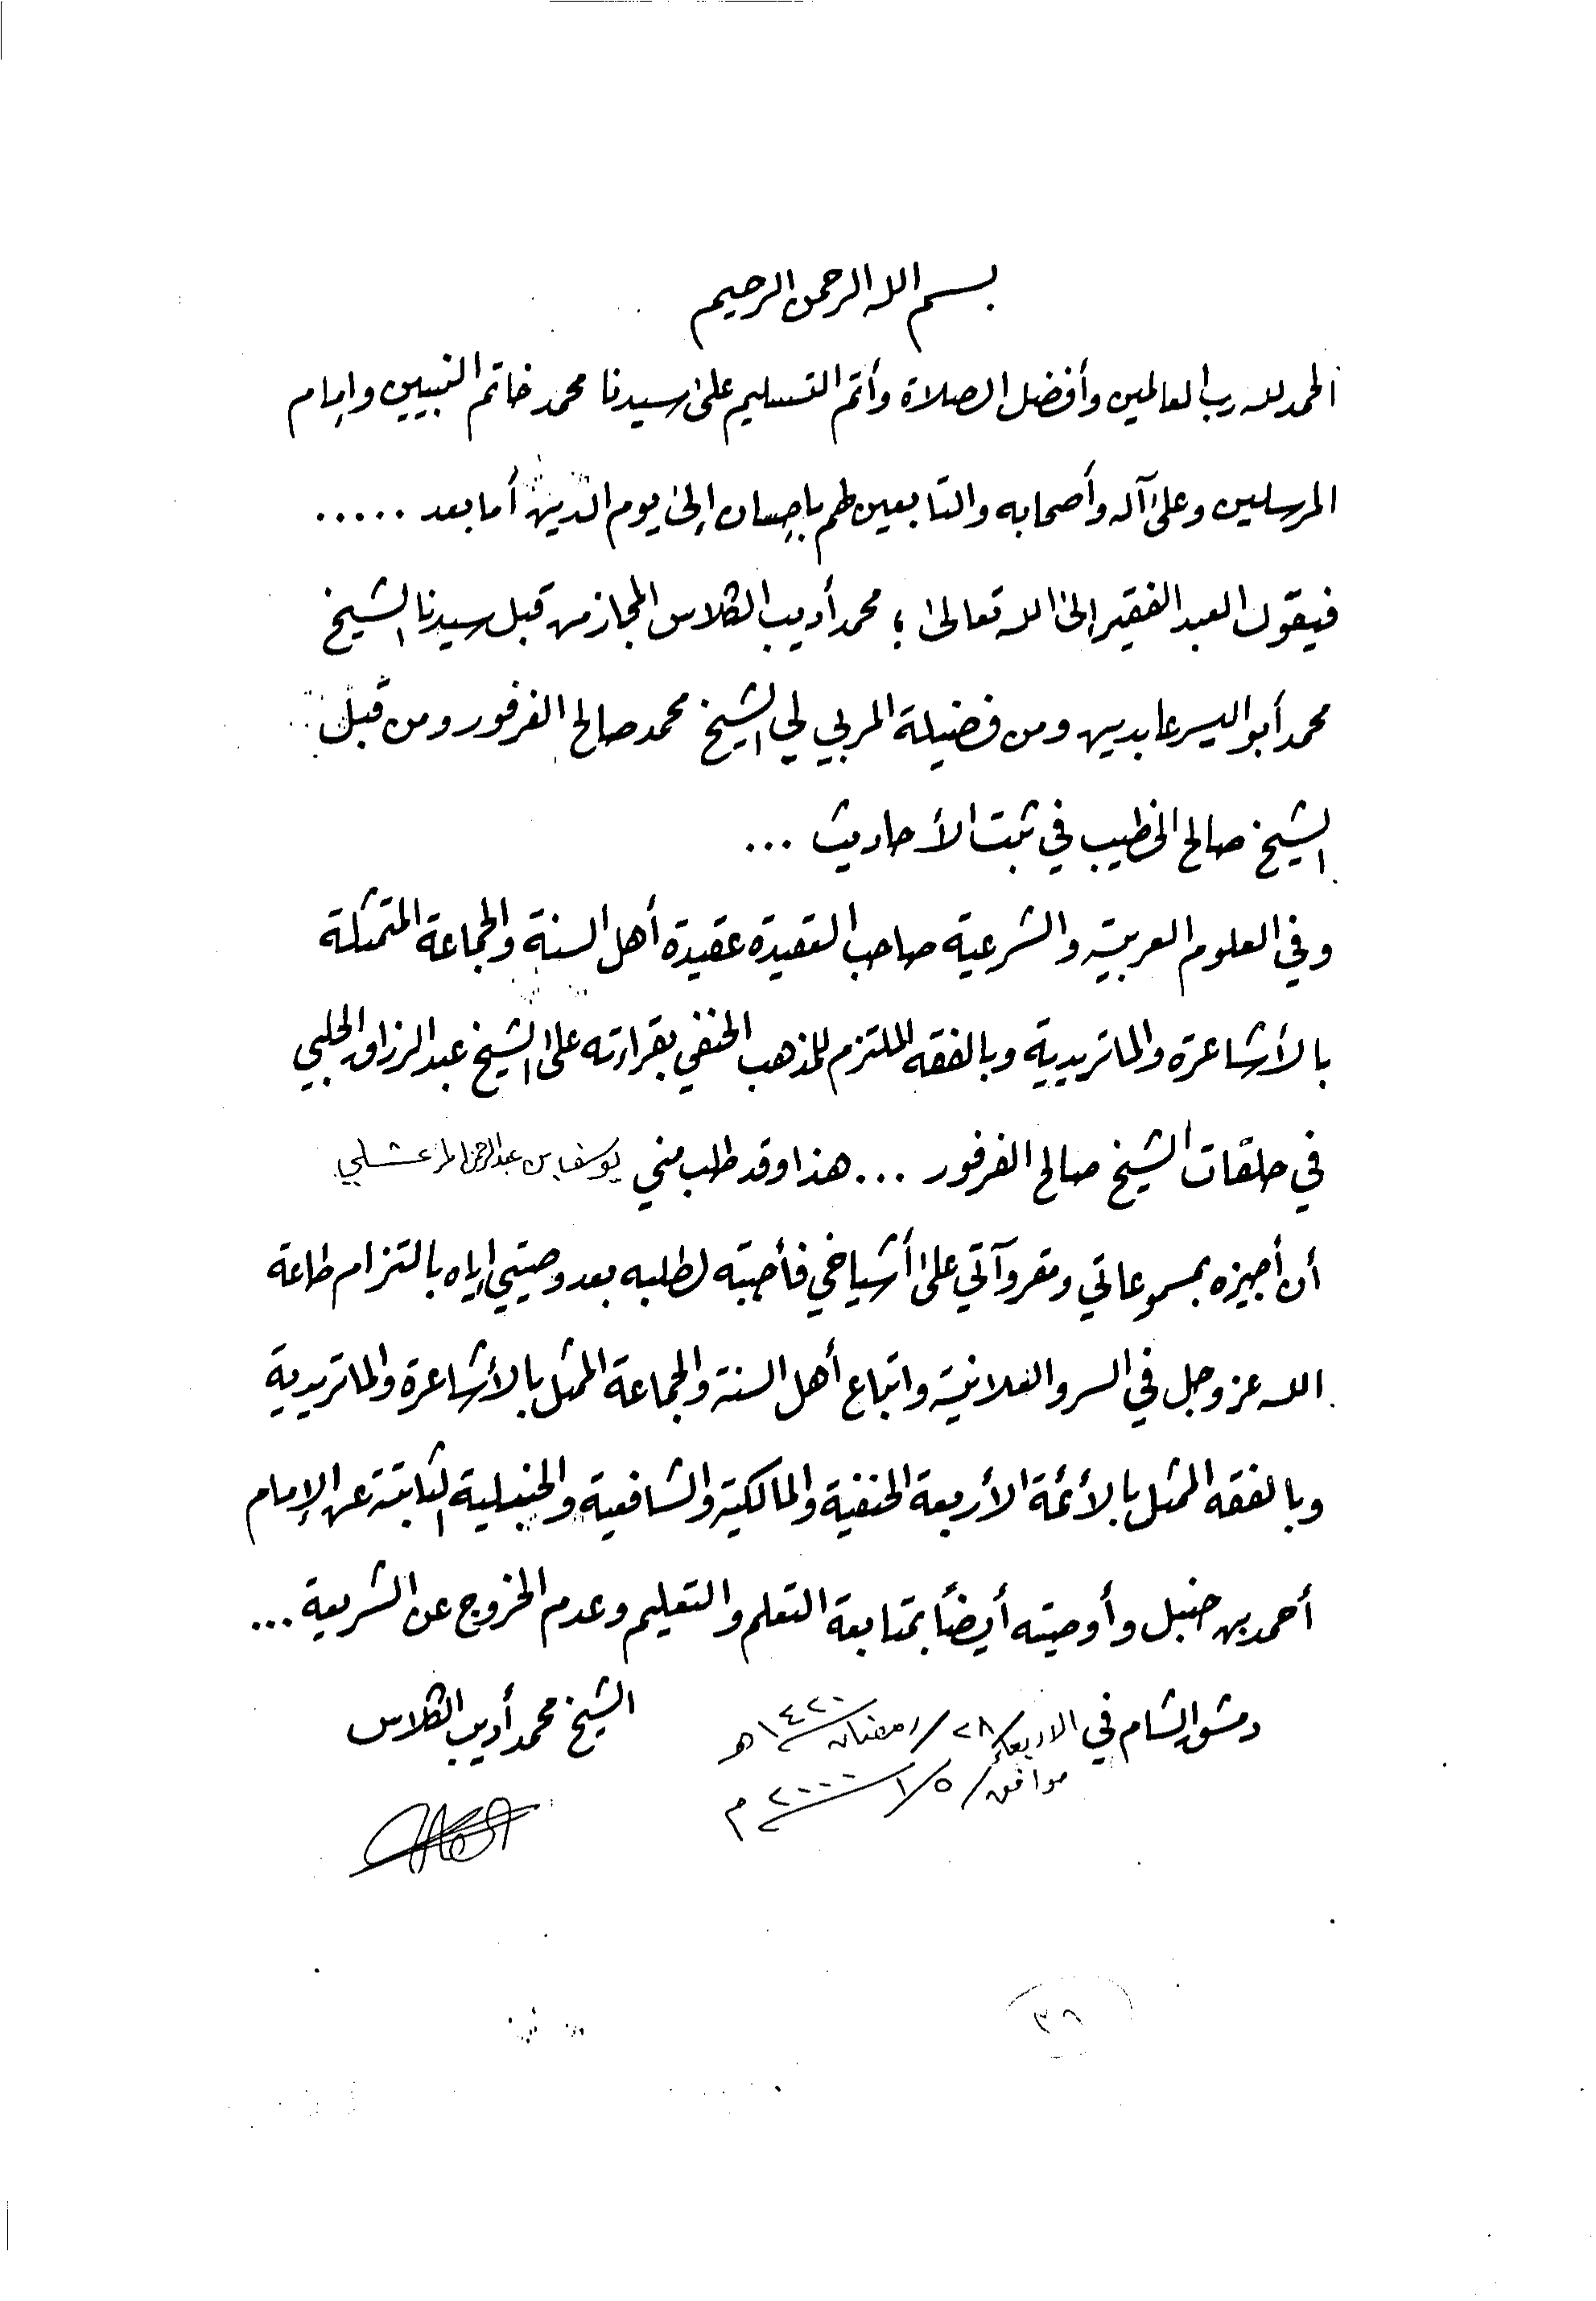 بسم الله الرحمن الرحيم
الحمد لله رب العالمين وأفضل الصلاة وأتم التسليم على سيدنا محمد خاتم النبيين وإمام
المرسلين وعلى آله وأصحابه والتابعين لهم بإحسان إلى يوم الدين أما بعد .....
فيقول العبد الفقير إلى الله تعالى ؛ محمد أديب الكلاس المجاز من قبل سيدنا الشيخ
محمد أبو اليسر عابدين ومن فضيلة المربي لي الشيخ محمد صالح الفرفور ومن قبل
الشيخ صالح الخطيب في ثبت الأحاديث ...
وفي العلوم العربية والشرعية صاحب العقيدة عقيدة أهل السنة والجماعة المتمثلة
بالأشاعرة والماتريدية وبالفقه الملتزم للمذهب الحنفي بقراءته على الشيخ عبد الرزاق الحلبي
في حلقات الشيخ صالح الفرفور ... هذا وقد طلب مني يوسف بن عبد الرحمن المرعشلي
أن أجيزه بمسموعاتي ومقروآتي على أشياخي فأجبته لطلبه بعد وصيتي إياه بالتزام طاعة
الله عز وجل في السر والعلانية واتباع أهل السنة والجماعة الممثل بالأشاعرة والماتريدية
وبالفقه الممثل بالأئمة الأربعة الحنفية والمالكية والشافعية والحنبلية الثابتة عن الإمام
أحمد بن حنبل وأوصيته أيضاً بمتابعة التعلم والتعليم وعدم الخروج عن الشريعة ...
دمشق الشام في الاربعاء / ٢٨ / رمضان ١٤٢٠ هـ الشيخ محمد أديب الكلاس
موافق / ٥ / ١ ٢٠٠٠ م